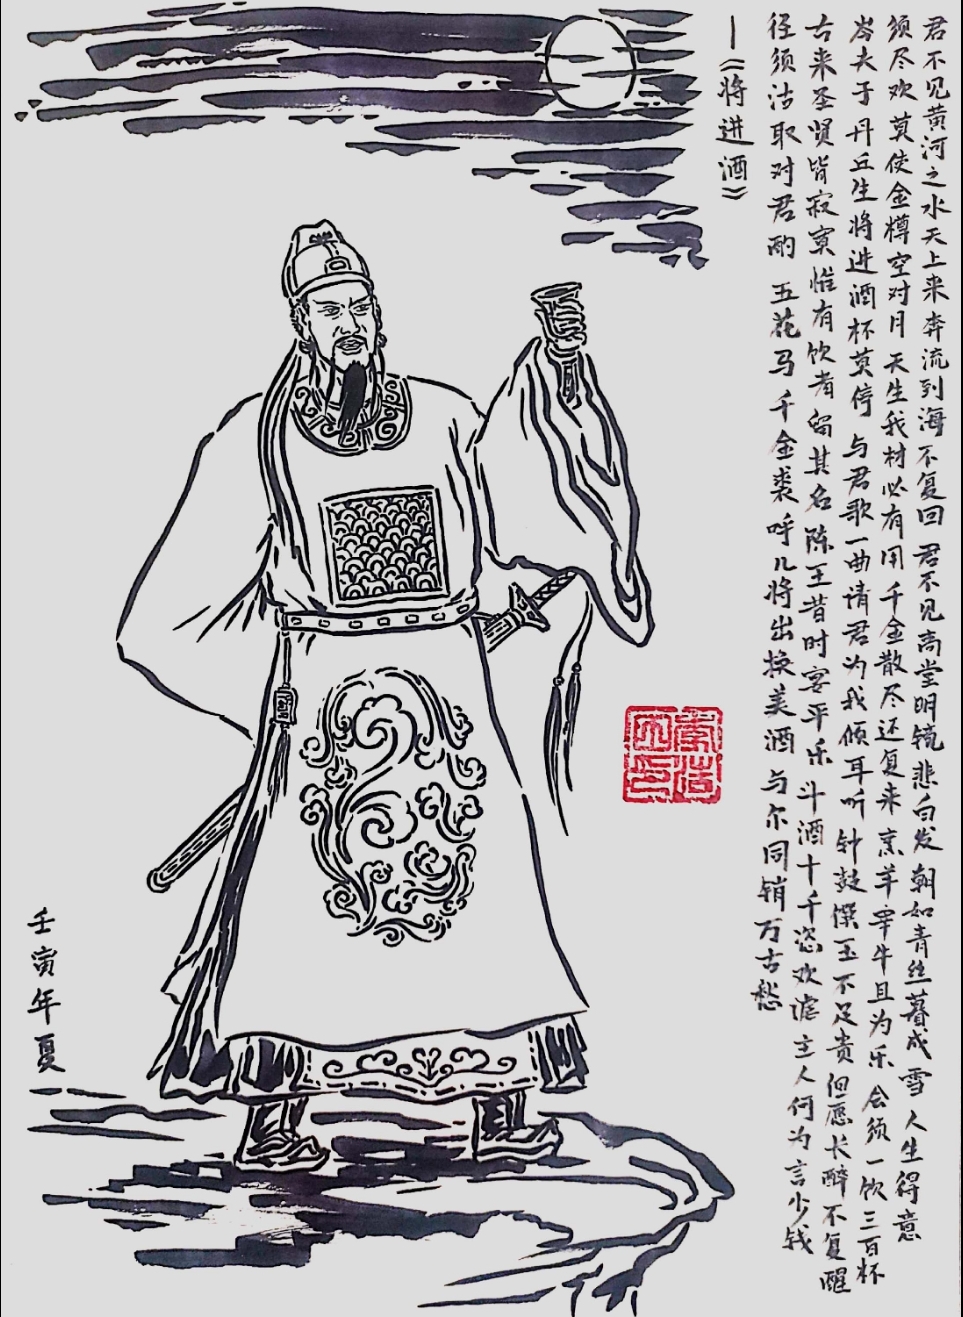 君不见黄河之水天上来奔流到海不复回 君不见高堂明镜悲白发 朝如青丝暮成雪 人生得意
须尽欢莫使金樽空对月 天生我材必有用 千金散尽还复来 烹羊宰牛且为乐 会须一饮三百杯
岑夫子丹丘生将进酒杯莫停 与君歌一曲请君为我倾耳听 钟鼓馔玉不足贵 但愿长醉不复醒
古来圣贤皆寂寞惟有饮者留其名 陈王昔时宴平乐 斗酒十千恣欢谑 主人何为言少钱
径须沽取对君酌 五花马千金裘呼儿将出换美酒 与尔同销万古愁
—《将进酒》
壬寅年夏